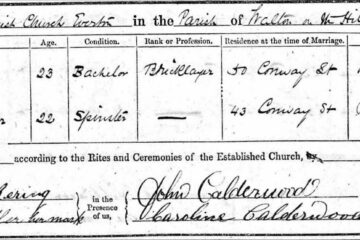 ish Church Everton in the Parish of Walton on the Hil
Age. Condition. Rank or Profession. Residence at the time of Marriage.
23 Bachelor Bricklayer 50 Conway St
22 Spinster — 43 Conway St
according to the Rites and Ceremonies of the Established Church, by
ering in the Presence of us, John Calderwood
her mark Caroline Calderwood